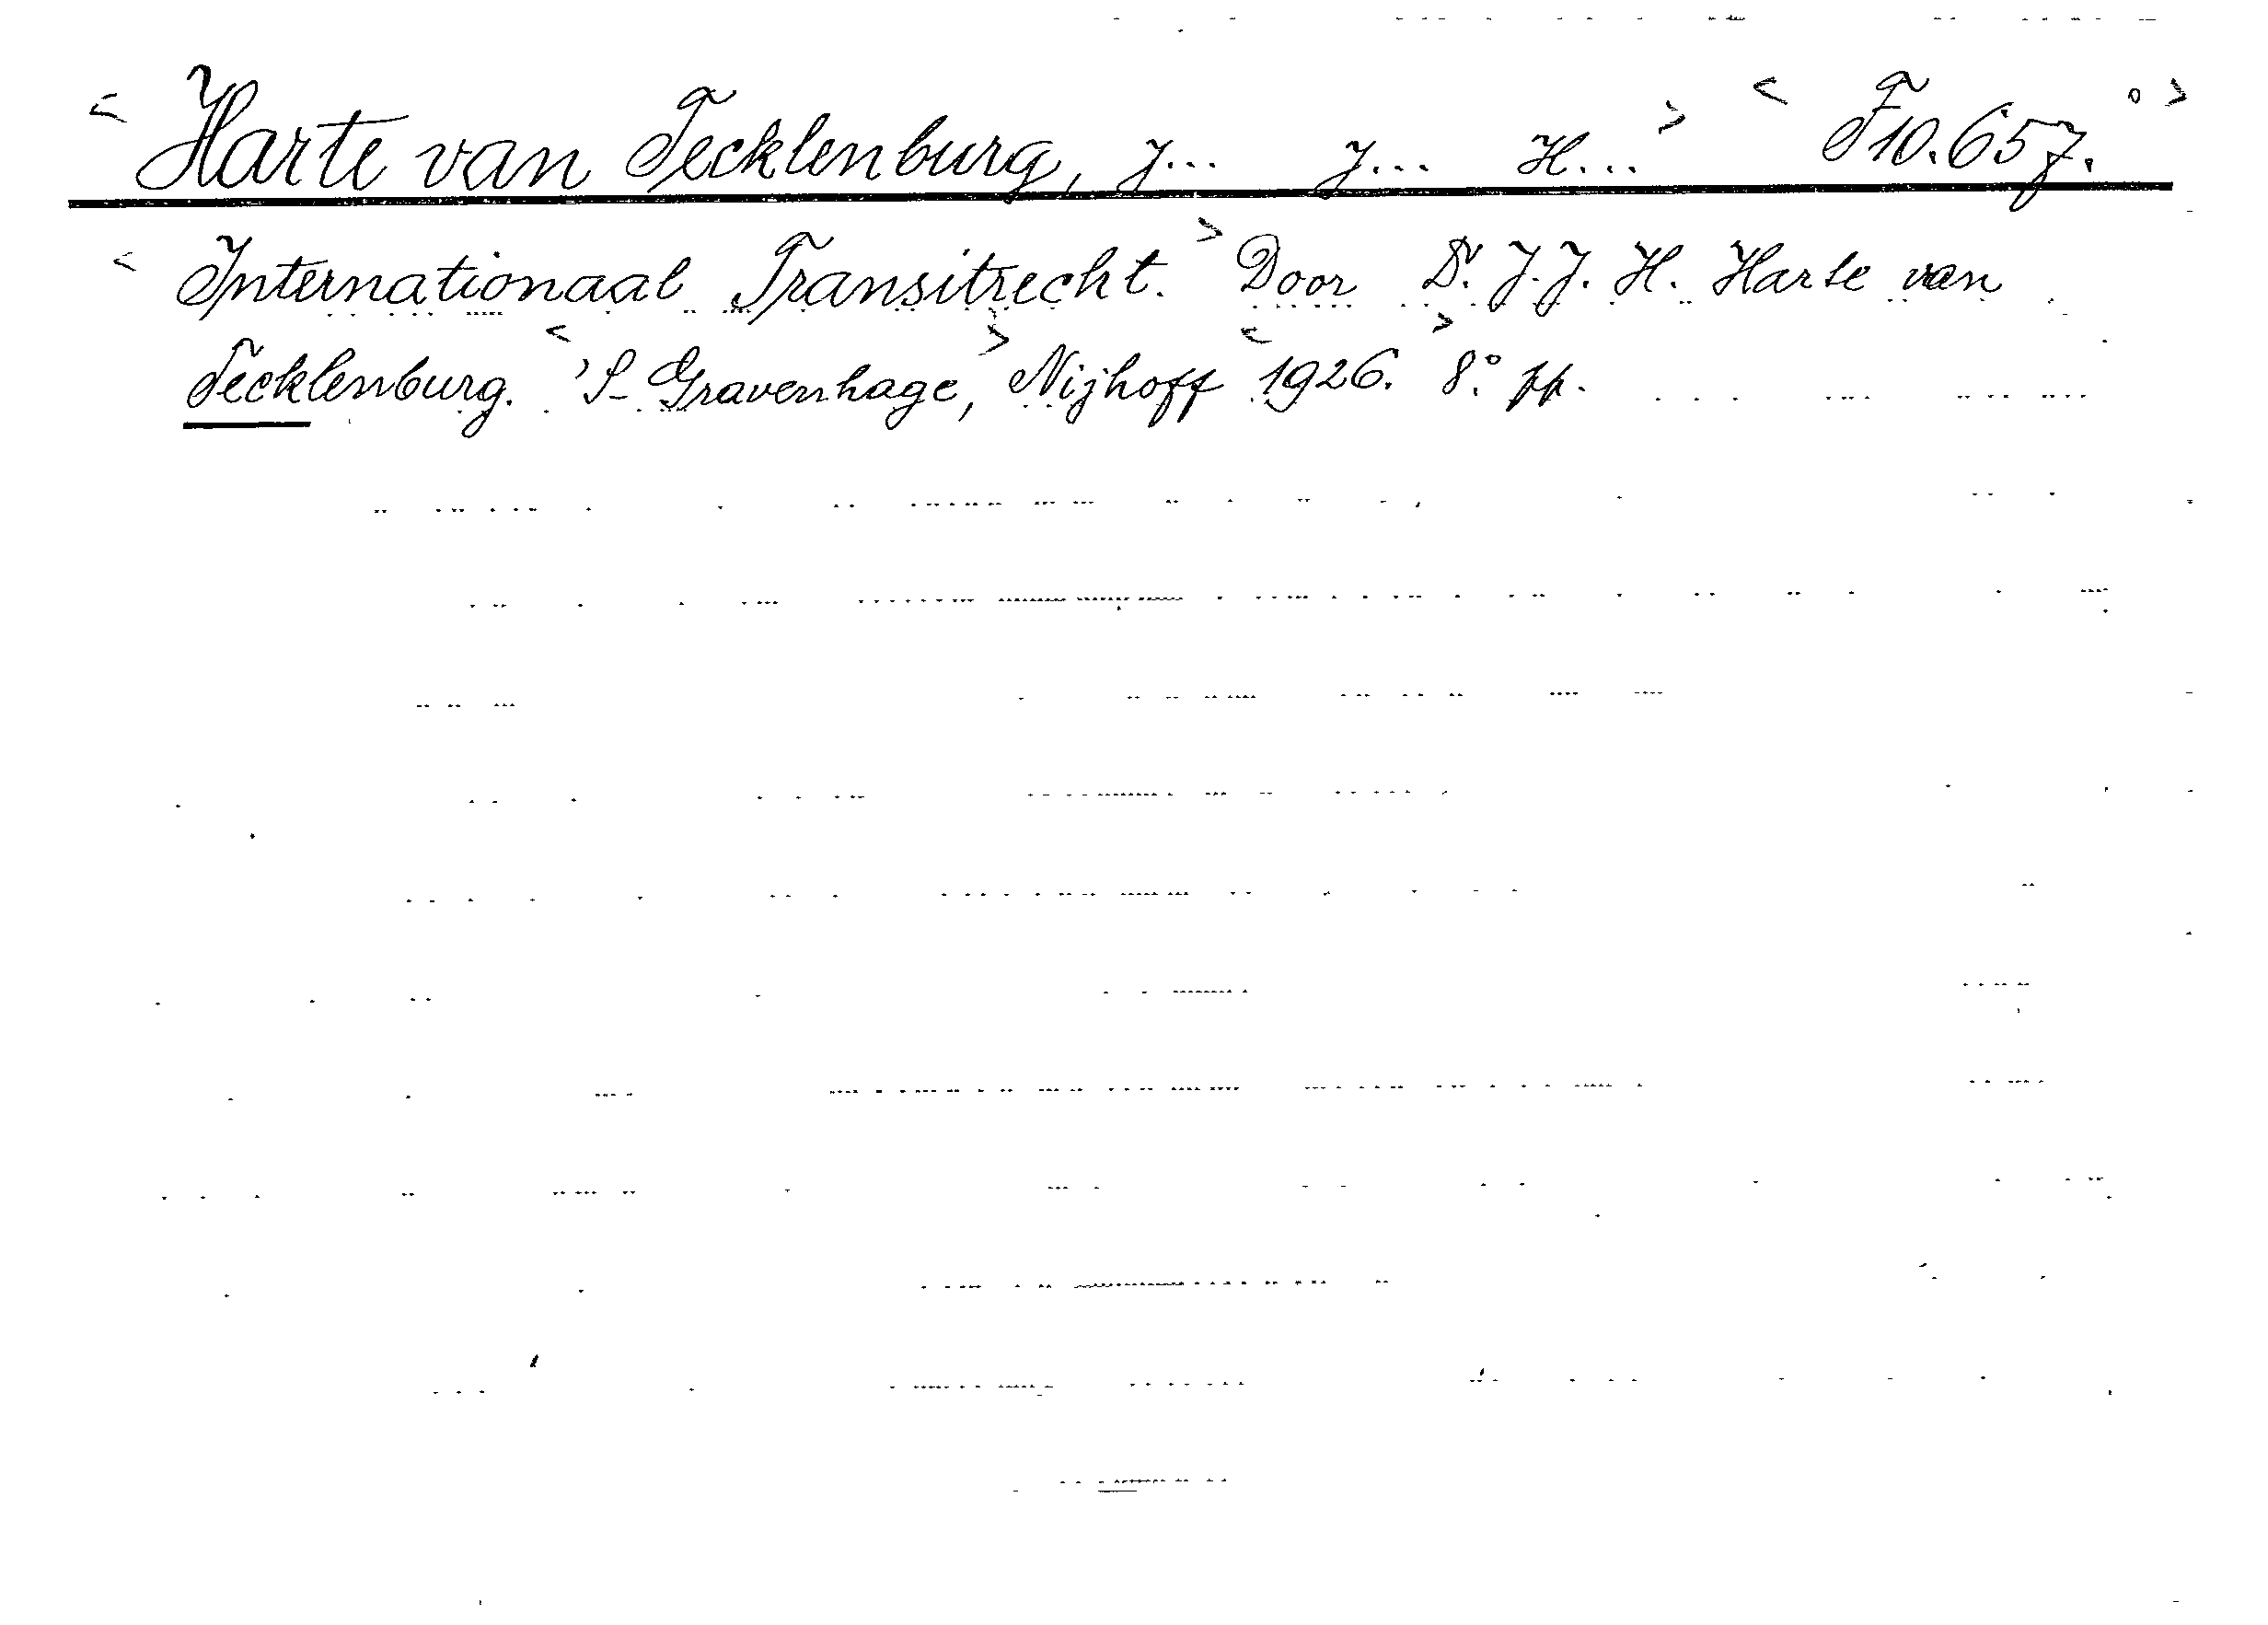 < Harte van Tecklenburg, J... J... H... > < F10.657. ° >
< Internationaal Transitrecht. > Door Dr. J. J. H. Harte van
Tecklenburg. < 'S-Gravenhage, > Nijhoff < 1926. > 8.° pp.